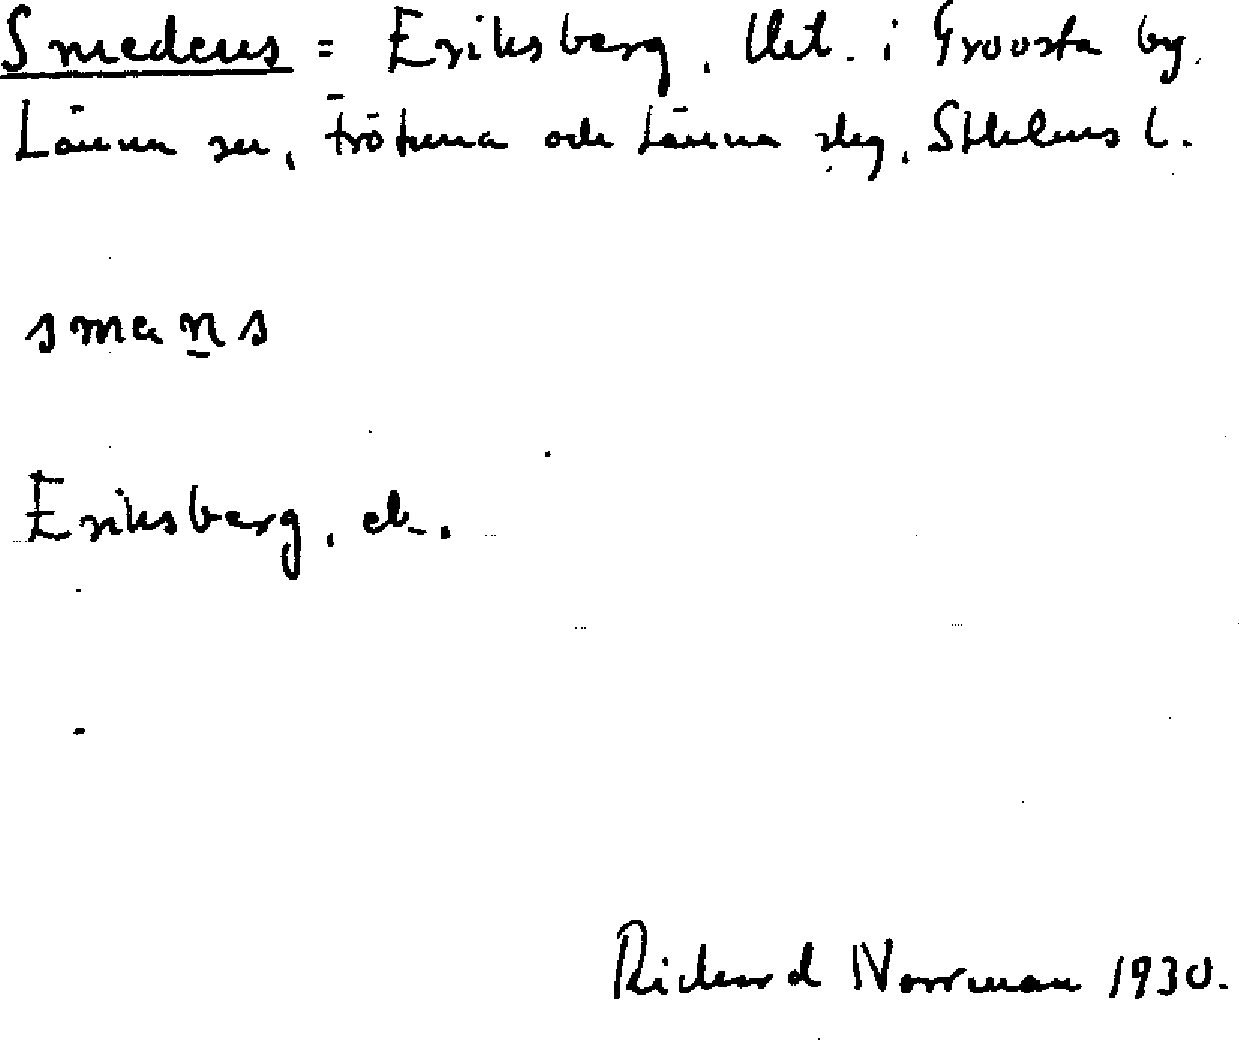 Smedens = Eriksberg, Utl. i Grovsta by,
Länna sn, Frötuna och Länna skg, Sthlms l.
smens
Eriksberg, ek.
Richard Norrman 1930.